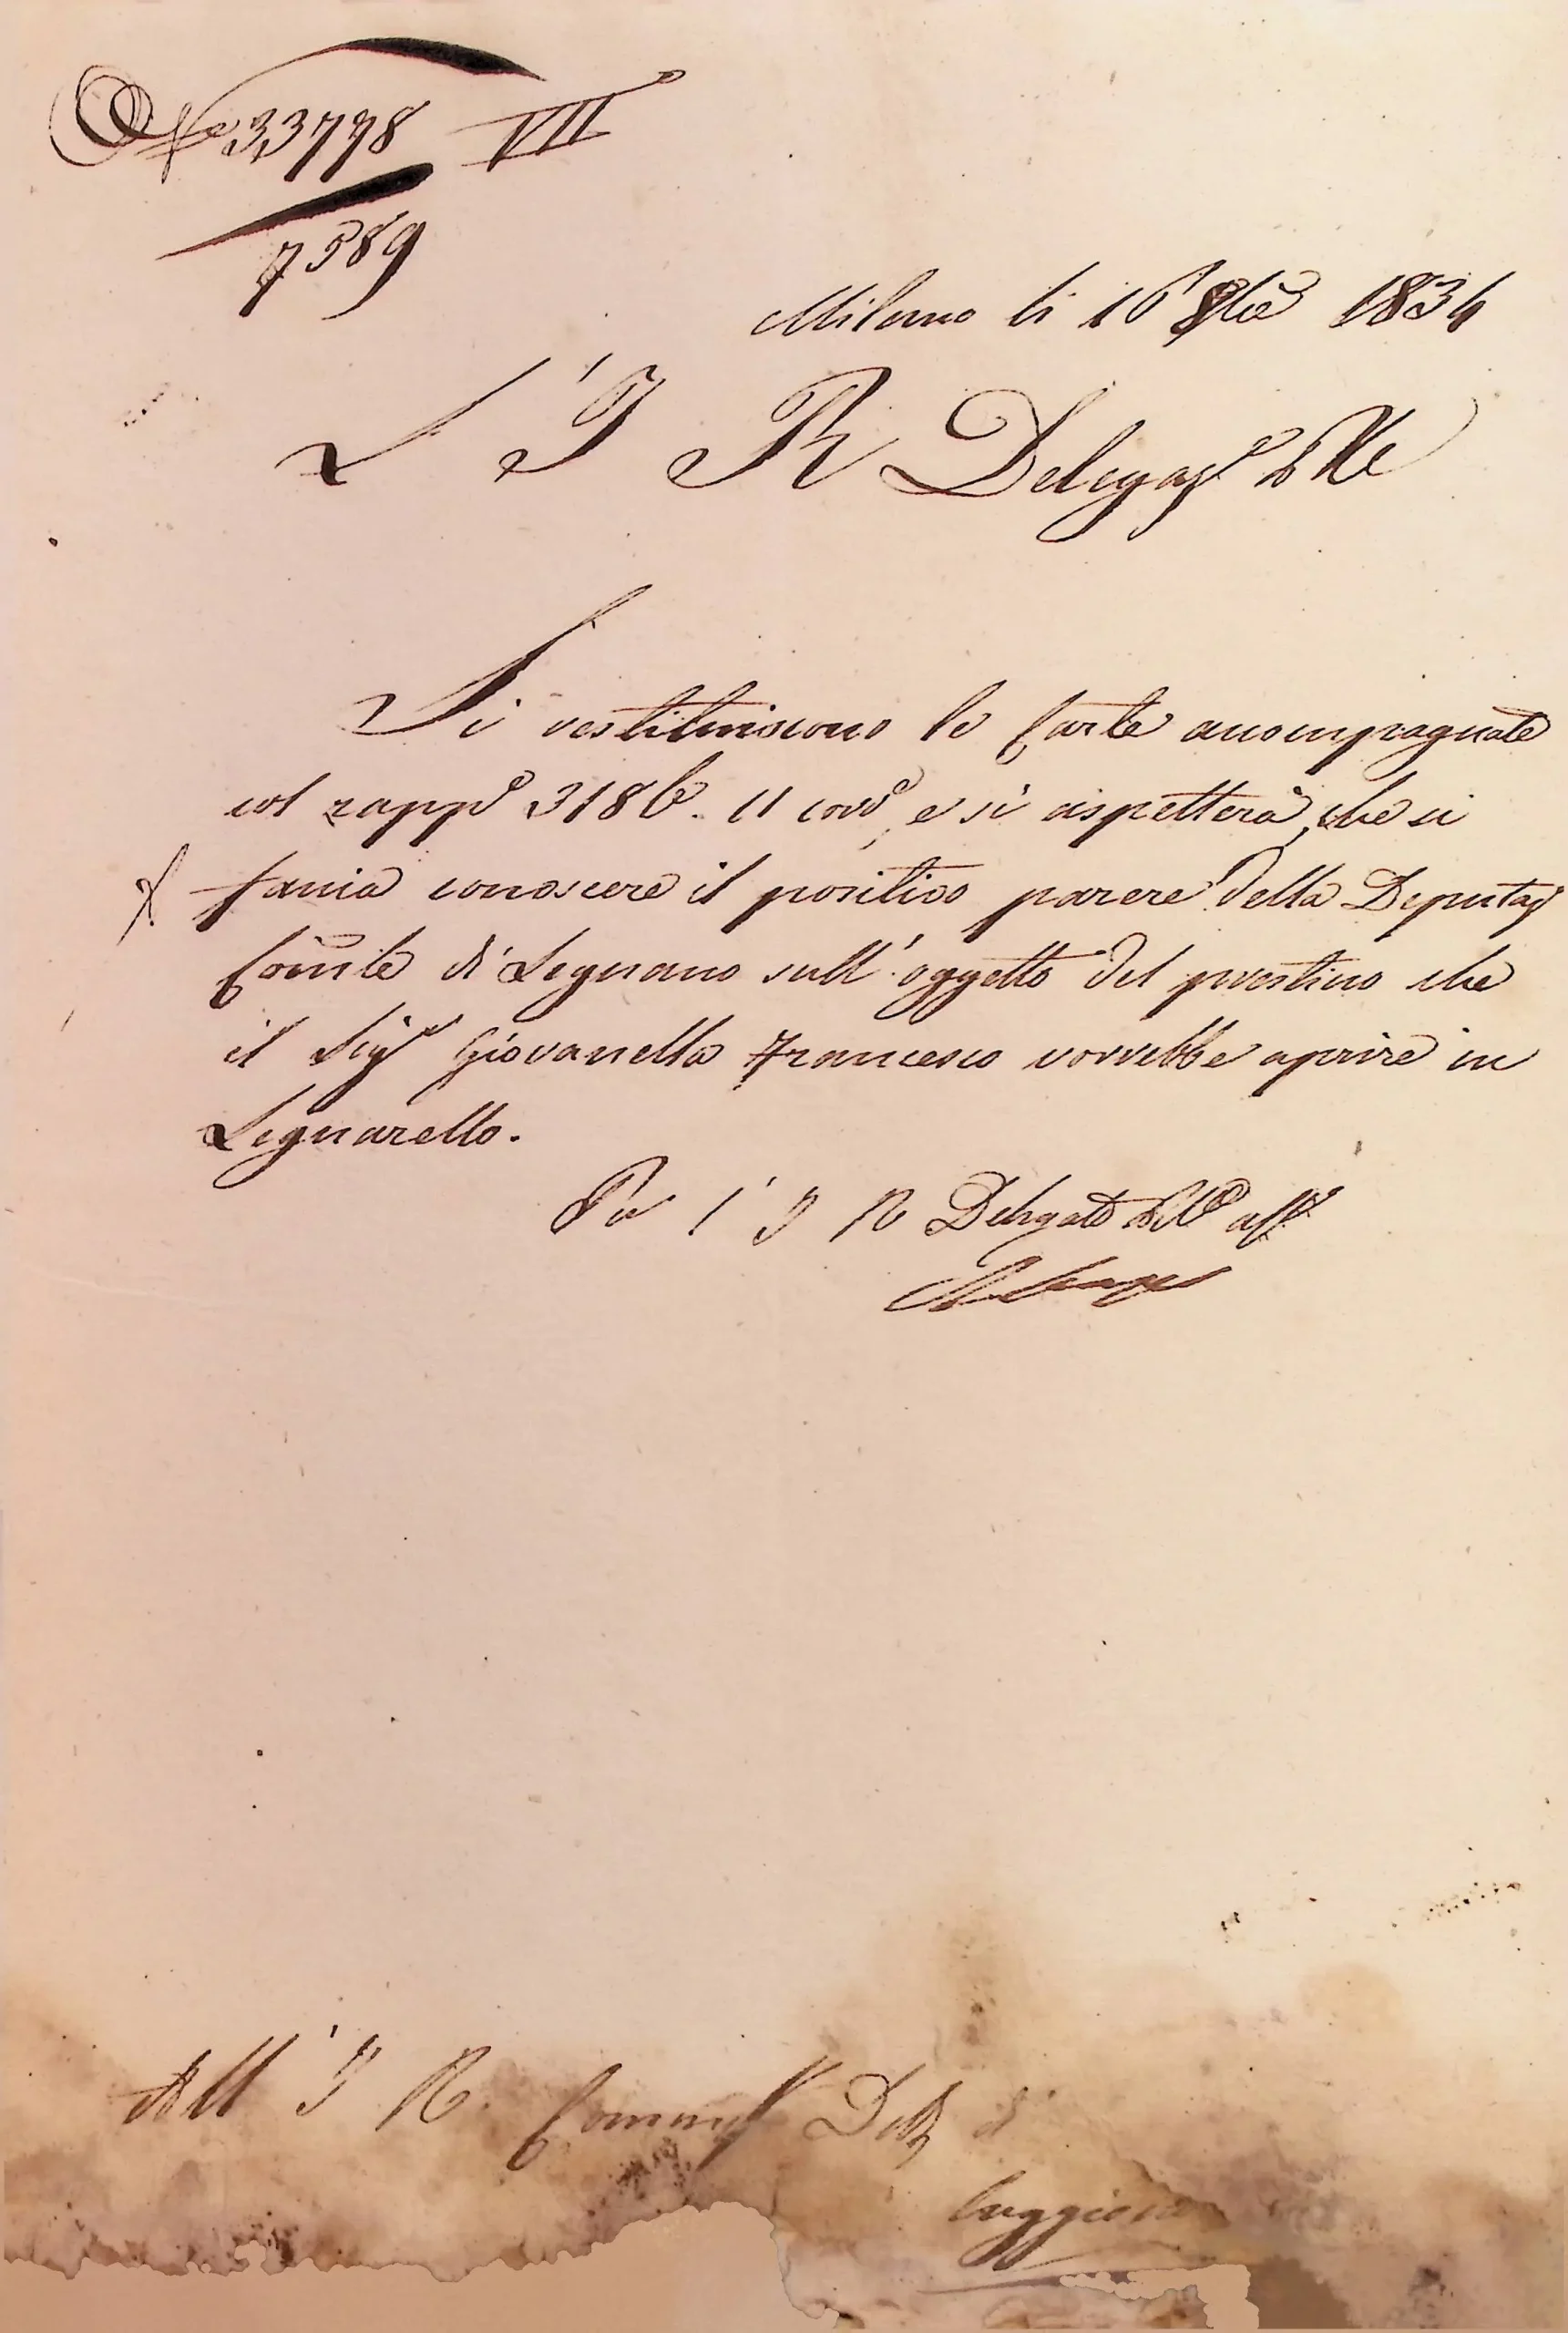 N.º 33778 VII
7389
Milano li 16 8bre 1834
L' I R Delegazne Ple
Si restituiscono le Carte accompagnate
col rappto 3186. 11 corre, e si aspetterà, che si
faccia conoscere il positivo parere della Deputazne
Comle di Legnano sull'oggetto del prestino che
il Sigr Giovanella Francesco vorrebbe aprire in
Legnarello.
Per l' I R Delegato Ple
All' I R. Commissº Dist. di
Cuggiono